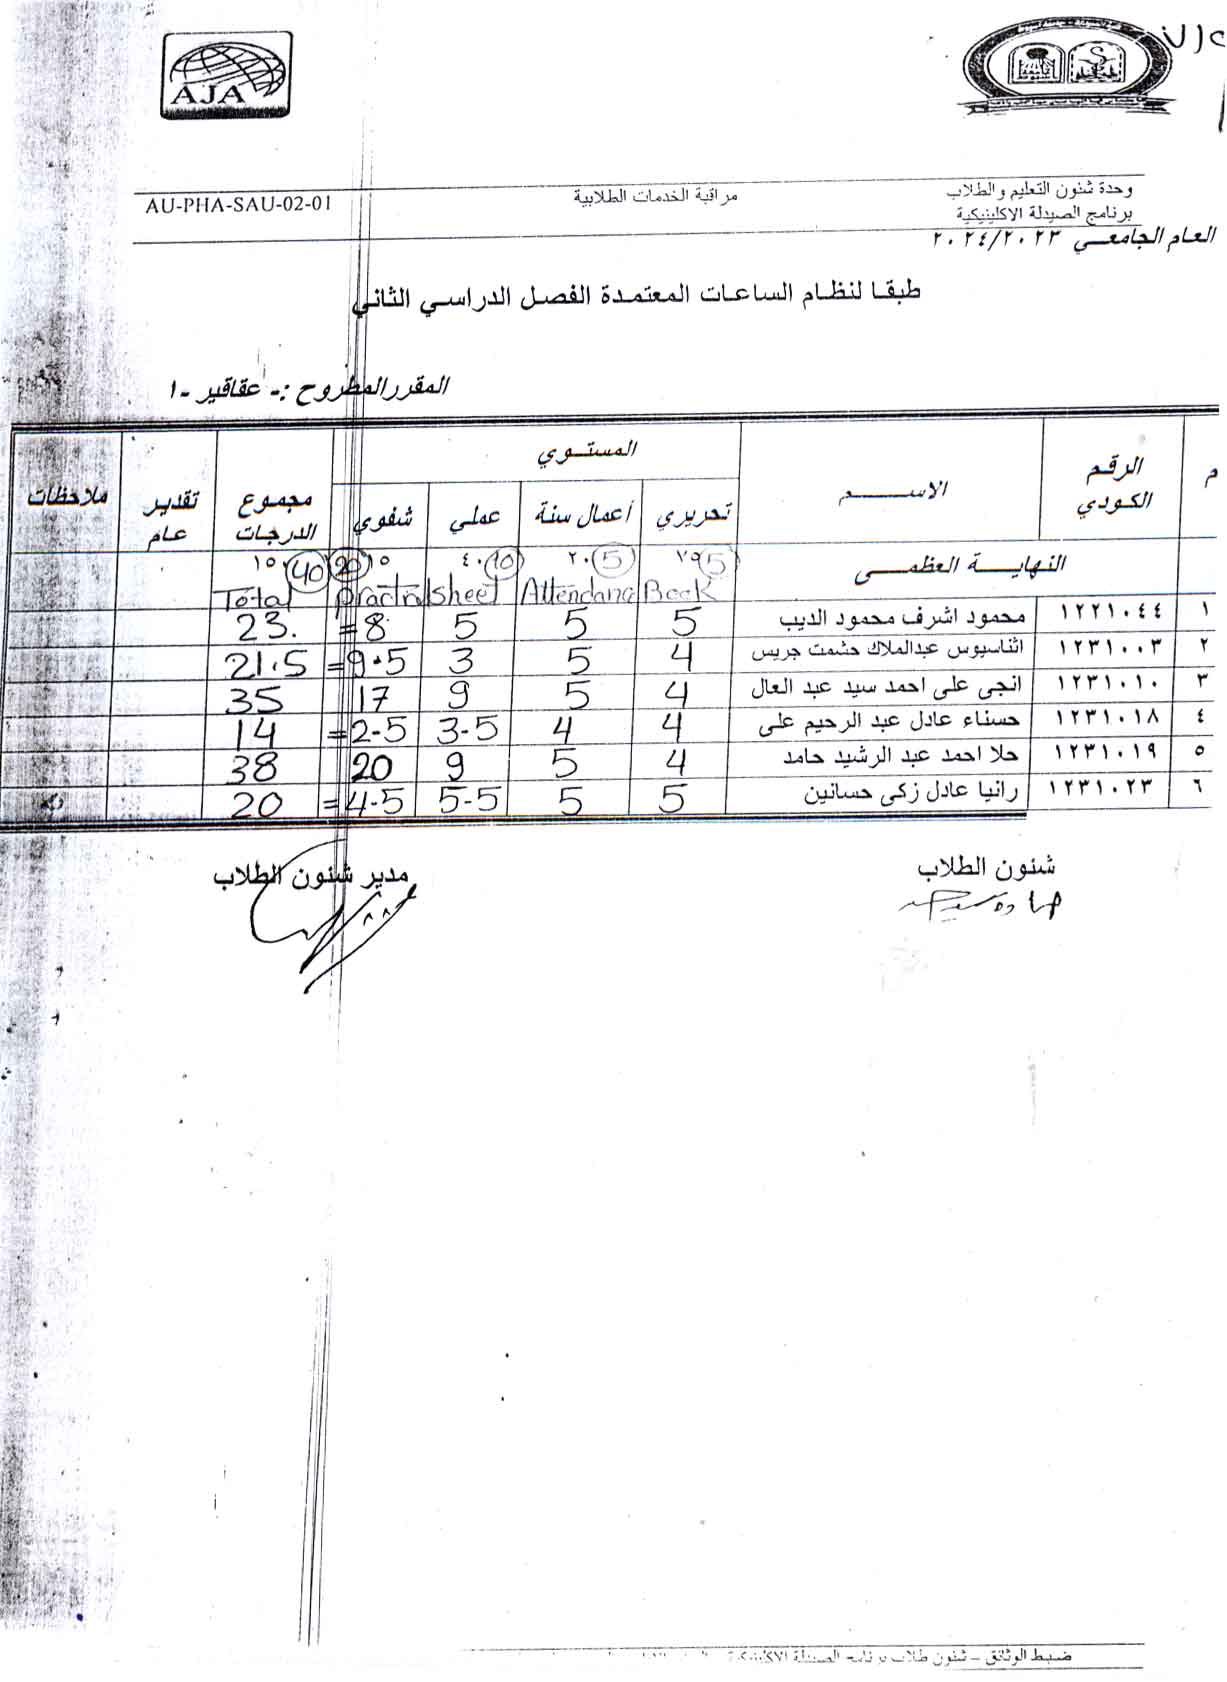 AJA
وحدة شئون التعليم والطلاب
مراقبة الخدمات الطلابية
AU-PHA-SAU-02-01
برنامج الصيدلة الاكلينيكية
العام الجامعي ٢٠٢٤/٢٠٢٣
طبقا لنظام الساعات المعتمدة الفصل الدراسي الثاني
المقرر المطروح :- عقاقير -١
م الرقم الكودي الاسم المستوي مجموع الدرجات تقدير عام ملاحظات
تحريري أعمال سنة عملي شفوي
النهاية العظمى ٧٥ (5) ٢٠ (5) ٤٠ (10) ١٥ (20) ١٥٠ (40)
Book Attendanc sheet practra Total
١ ١٢٢١٠٤٤ محمود اشرف محمود الديب 5 5 5 8= 23.
٢ ١٢٣١٠٠٣ اثناسيوس عبدالملاك حشمت جريس 4 5 3 9.5= 21.5
٣ ١٢٣١٠١٠ انجى على احمد سيد عبد العال 4 5 9 17 35
٤ ١٢٣١٠١٨ حسناء عادل عبد الرحيم على 4 4 3-5 2-5= 14
٥ ١٢٣١٠١٩ حلا احمد عبد الرشيد حامد 4 5 9 20 38
٦ ١٢٣١٠٢٣ رانيا عادل زكى حسانين 5 5 5-5 4-5= 20
شئون الطلاب
مدير شئون الطلاب
ضبط الوثائق - شئون طلاب برنامج الصيدلة الاكلينيكية